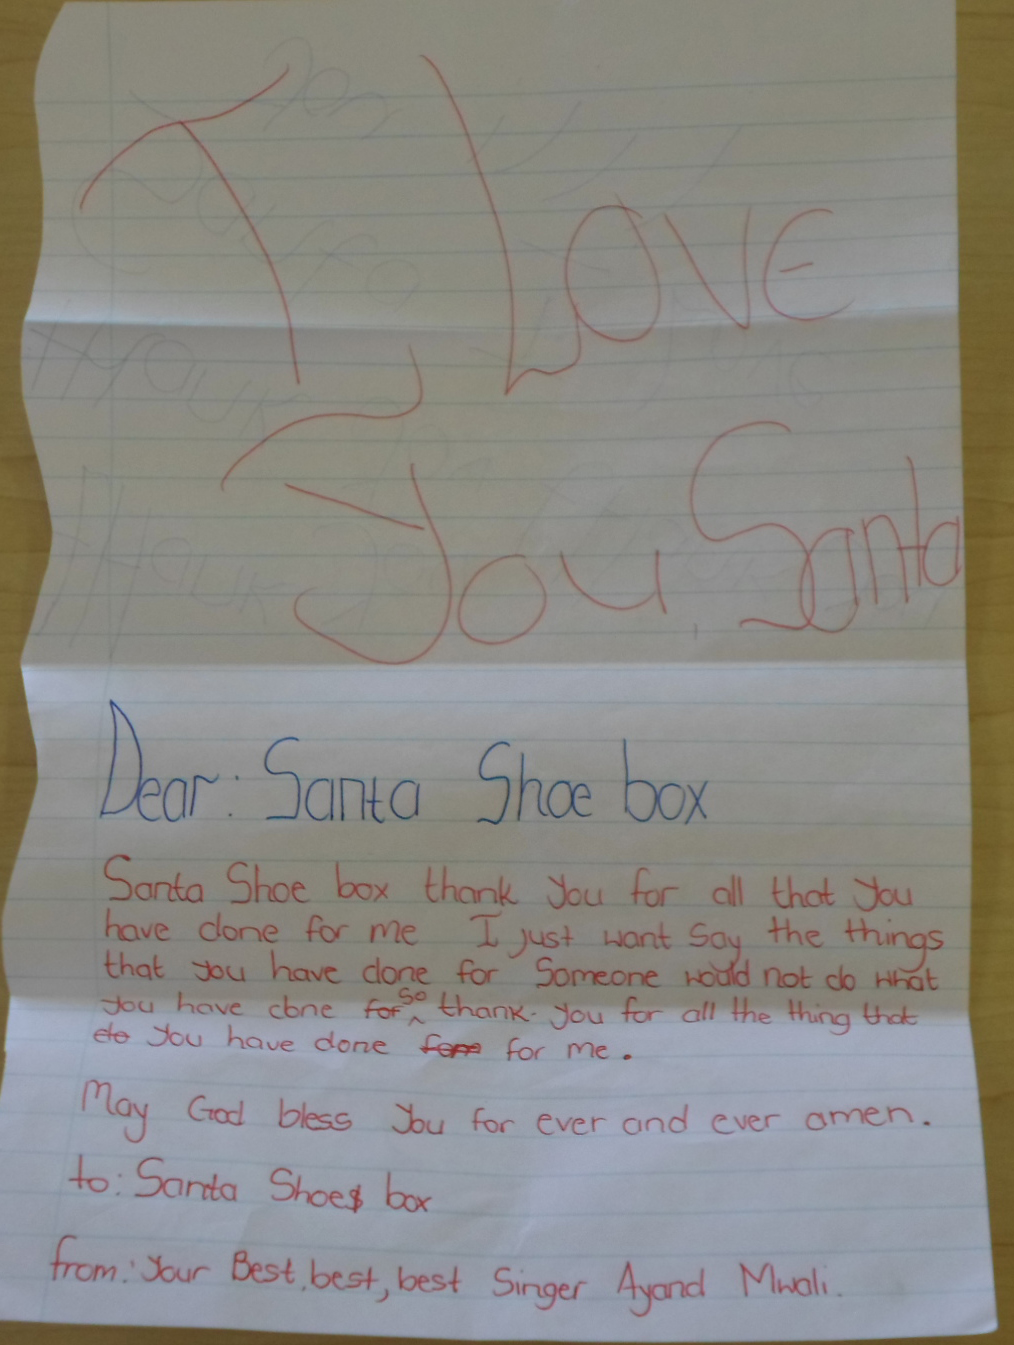 I LOVE
You Santa
Dear: Santa Shoe box
Santa Shoe box thank you for all that you
have done for me I just want say the things
that you have done for Someone would not do what
you have done for so thank you for all the thing that
do you have done for me.
May God bless you for ever and ever amen.
to: Santa Shoes box
from: Your Best, best, best Singer Ayand Mwali.